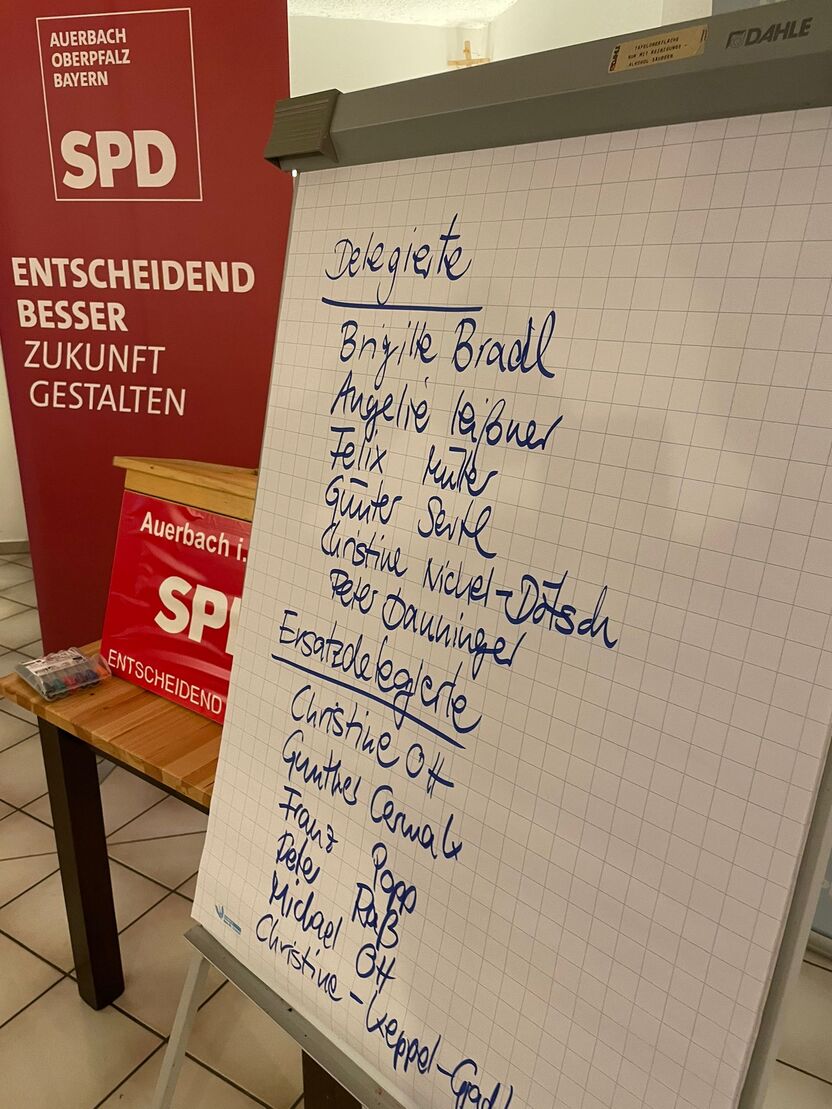 AUERBACH
OBERPFALZ
BAYERN
SPD
ENTSCHEIDEND
BESSER
ZUKUNFT
GESTALTEN
Auerbach i.
SPD
ENTSCHEIDEND
DAHLE
TAFELOBERFLÄCHE
NUR MIT REINIGUNGS-
ALKOHOL SÄUBERN
Delegierte
Brigitte Bradl
Angelie Leißner
Felix Müller
Günter Sertl
Christine Nickel-Dötsch
Peter Danninger
Ersatzdelegierte
Christine Ott
Günther Cermak
Franz Popp
Peter Raß
Michael Ott
Christine-Keppel-Gradl